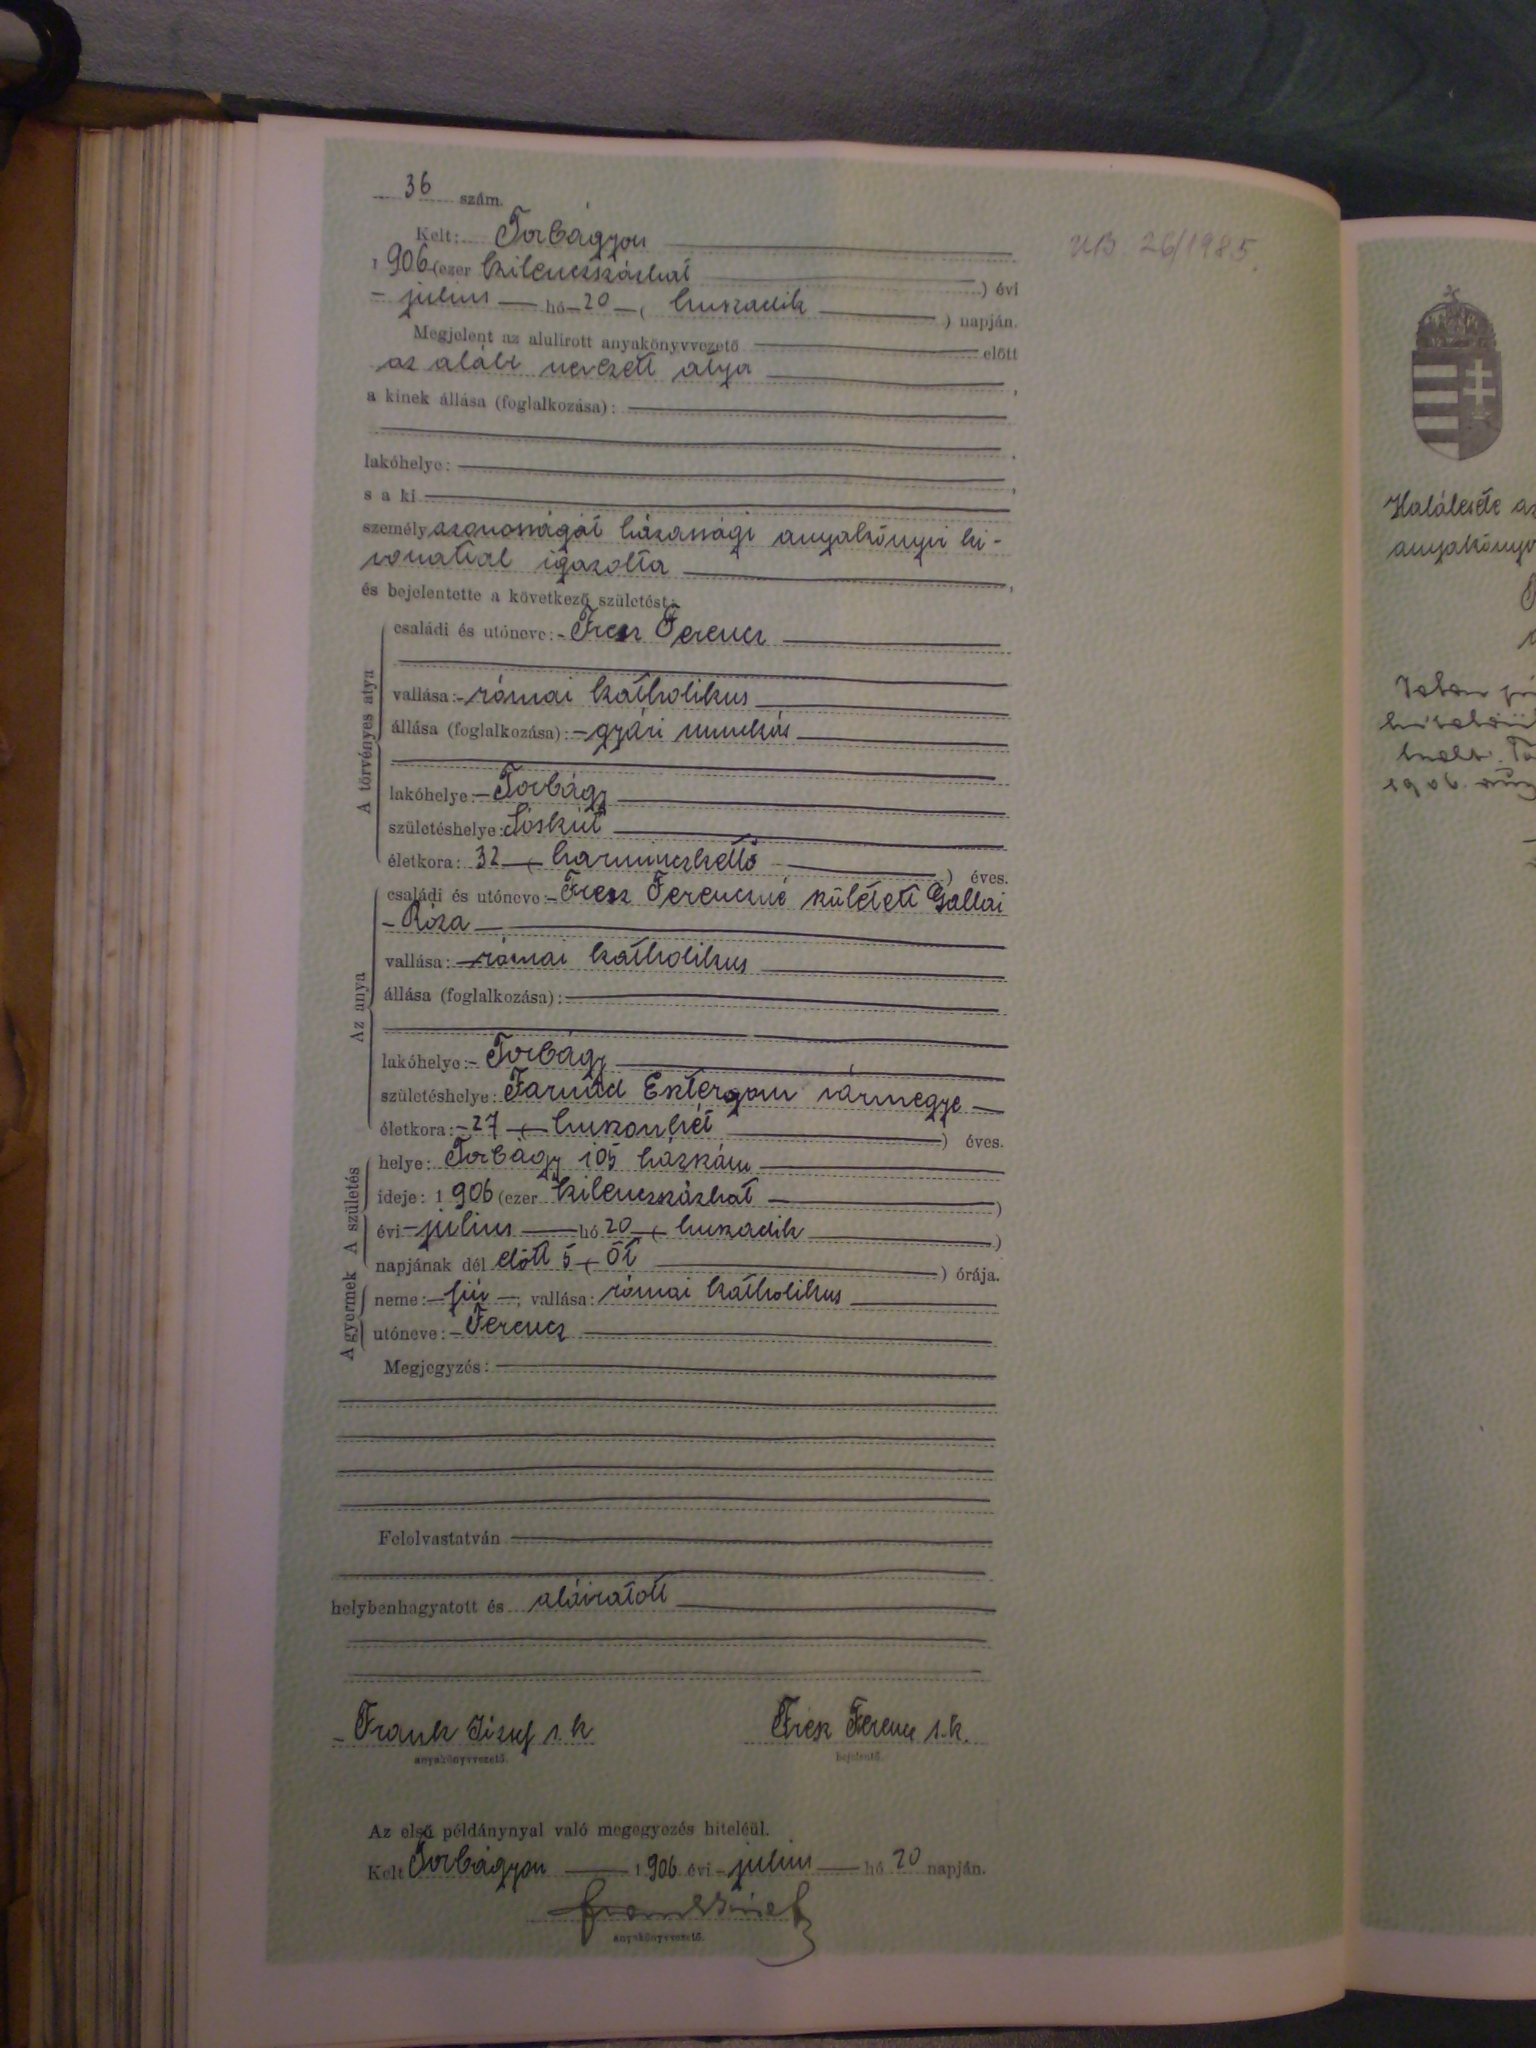 36 szám.
Kelt: Torbágyon
1906 (ezer kilenczszázhat) évi
július hó 20 (huszadik) napján.
Megjelent az alulirott anyakönyvvezető előtt
az alább nevezett atya,
a kinek állása (foglalkozása):
lakóhelye:
s a ki
személyazonosságát házassági anyakönyvi ki-
vonattal igazolta,
és bejelentette a következő születést:
A törvényes atya
családi és utóneve: Fresz Ferencz
vallása: római katholikus
állása (foglalkozása): gyári munkás
lakóhelye: Torbágy
születéshelye: Sóskút
életkora: 32 (harminczkettő) éves.
Az anya
családi és utóneve: Fresz Ferenczné született Gallai
Róza
vallása: római katholikus
állása (foglalkozása):
lakóhelye: Torbágy
születéshelye: Farnad Esztergom vármegye
életkora: 27 (huszonhét) éves.
A születés
helye: Torbágy 105 házszám
ideje: 1906 (ezer kilenczszázhat)
évi július hó 20 (huszadik)
napjának dél előtt 5 (öt) órája.
A gyermek
neme: fiú, vallása: római katholikus
utóneve: Ferencz
Megjegyzés:
Felolvastatván
helybenhagyatott és aláiratott
Frank József s. k
anyakönyvvezető.
Fresz Ferencz s. k.
bejelentő.
Az első példánynyal való megegyezés hiteléül.
Kelt Torbágyon 1906 évi július hó 20 napján.
Frank József
anyakönyvvezető.
UB 26/1985.
Halálesete az
anyakönyv
1906. aug